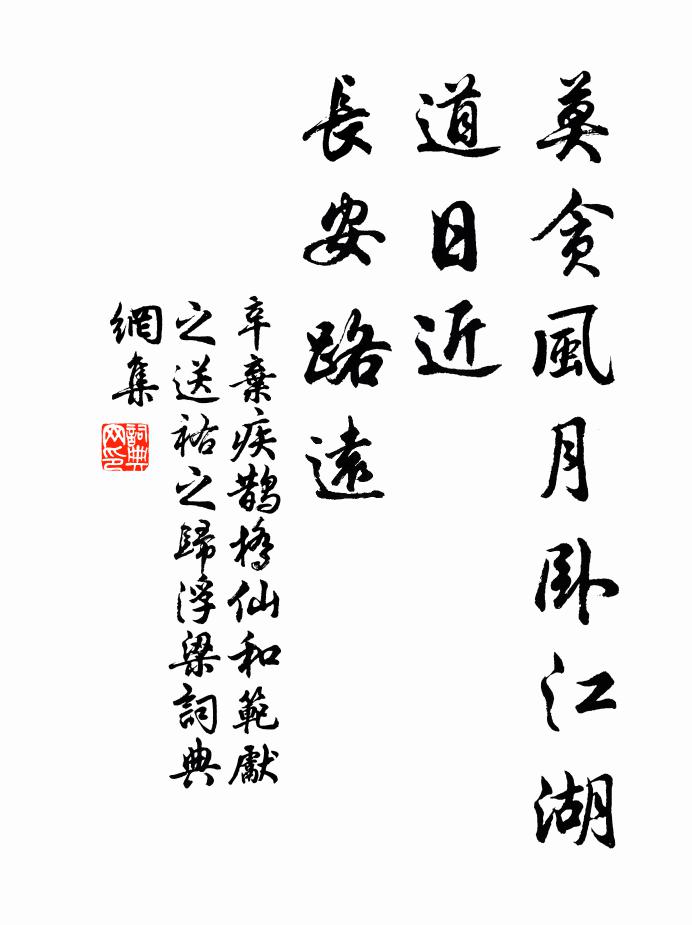 莫貪風月臥江湖
道日近
長安路遠
辛棄疾鵲橋仙和範獻
之送祐之歸浮梁詞典
網集
詞典網印